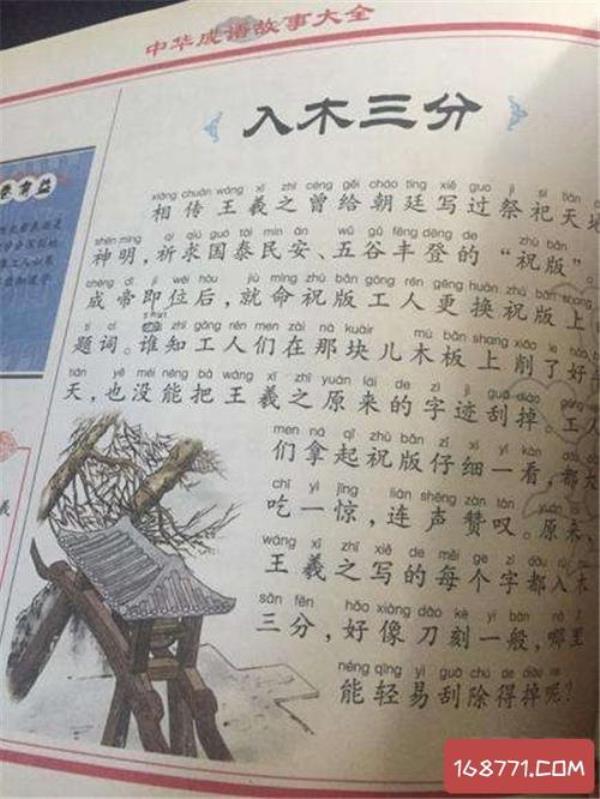 中华成语故事大全
入木三分
xiàng chuán wáng xī zhī céng gěi cháo tíng xiě guo jì sì tiān
相传王羲之曾给朝廷写过祭祀天地
shén míng qí qiú guó tài mín ān wǔ gǔ fēng dēng de zhù bǎn
神明，祈求国泰民安、五谷丰登的“祝版”。
chéng dì jí wèi hòu jiù mìng zhù bǎn gōng rén gēng huàn zhù bǎn shang
成帝即位后，就命祝版工人更换祝版上
tí cí zhī gōng rén men zài nà kuàir mù bǎn shang xiāo le hǎo
题词。谁知工人们在那块儿木板上削了好
tiān yě méi néng bǎ wáng xī zhī yuán lái de zì jì guā diào
天，也没能把王羲之原来的字迹刮掉。工人
men ná qǐ zhù bǎn zǐ xì yī kàn
们拿起祝版仔细一看，都大
chī yī jīng lián shēng zàn tàn yuán
吃一惊，连声赞叹。原来，
wáng xī zhī xiě de měi ge zì dōu
王羲之写的每个字都入木
sān fēn hǎo xiàng dāo kè yī bān
三分，好像刀刻一般，哪里
néng qīng yì guā chú de diào
能轻易刮除得掉呢？
有益
168771.com